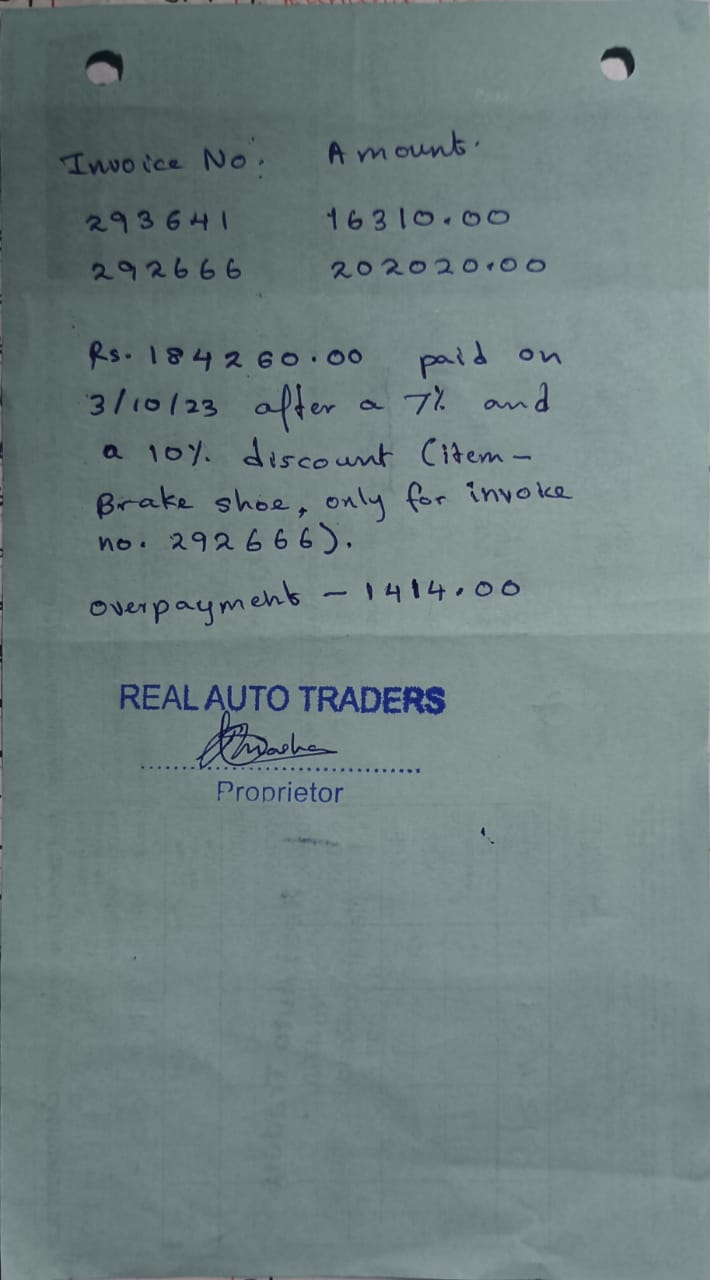 Invoice No: Amount.
293641 16310.00
292666 202020.00
Rs. 184260.00 paid on
3/10/23 after a 7% and
a 10% discount (item -
Brake shoe, only for invoice
no. 292666).
overpayment - 1414.00
REAL AUTO TRADERS
Proprietor